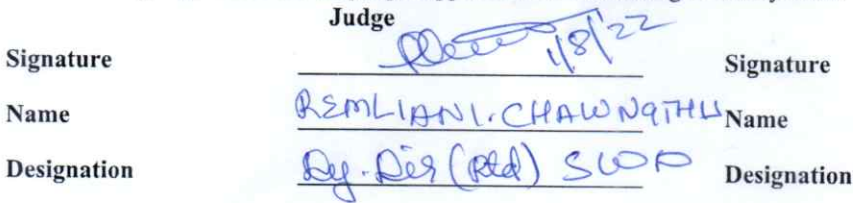 Judge
Signature 1/8/22 Signature
Name REMLIANI. CHAWNGTHU Name
Designation Dy. Dir (Rtd) SWD Designation